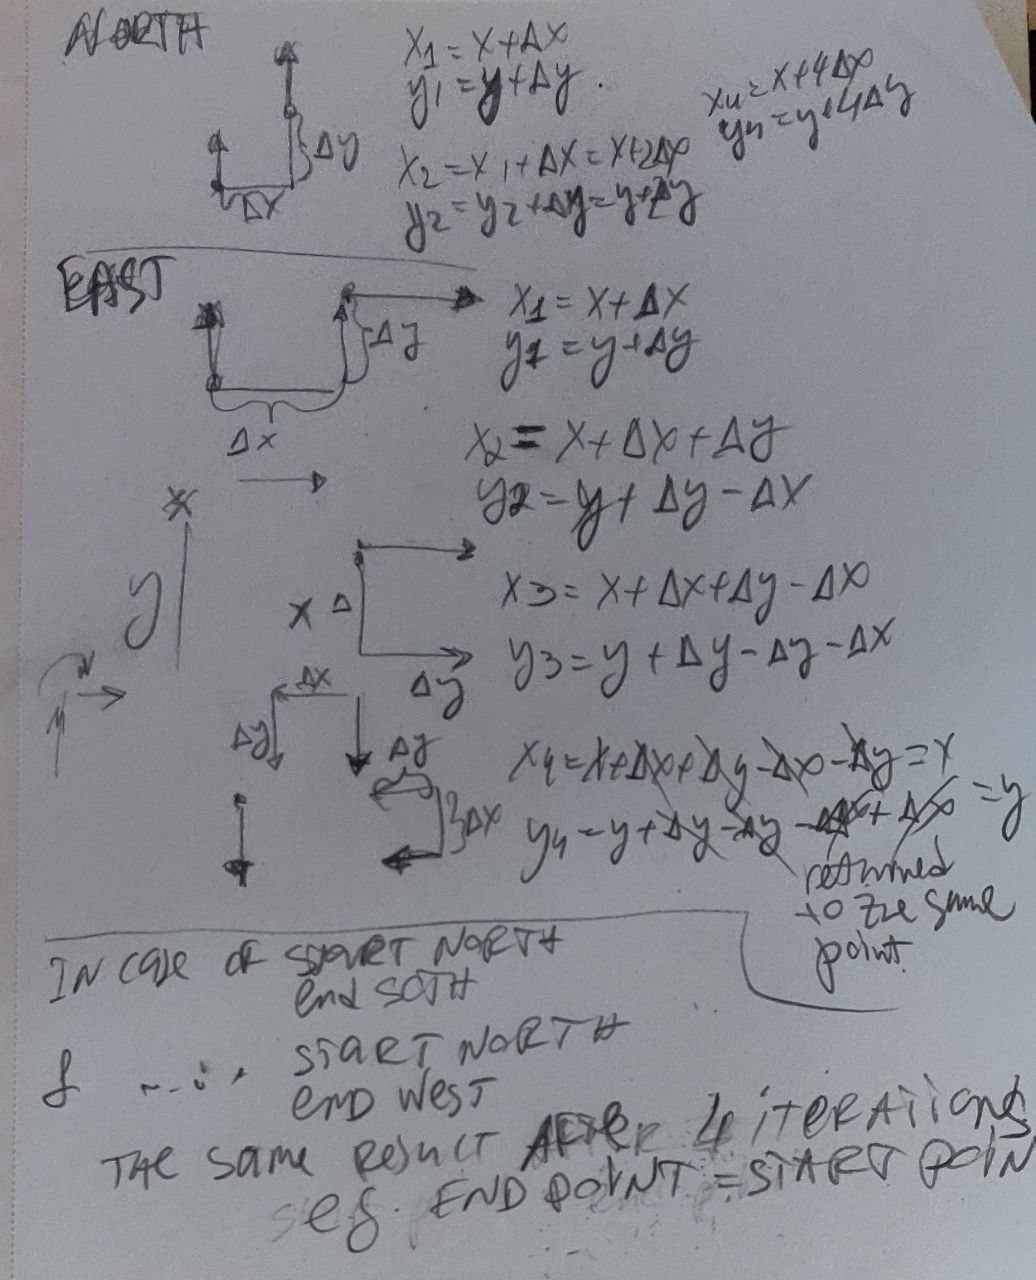 NORTH
x1 = x + Δx
y1 = y + Δy.
x4 = x + 4Δx
y4 = y + 4Δy
Δy
Δx
x2 = x1 + Δx = x + 2Δx
y2 = y2 + Δy = y + 2Δy
EAST
Δy
Δx
x1 = x + Δx
y1 = y + Δy
x2 = x + Δx + Δy
y2 = y + Δy - Δx
x
y
x Δ
Δy
x3 = x + Δx + Δy - Δx
y3 = y + Δy - Δy - Δx
Δx
Δy
Δy
Δx
x4 = x + Δx + Δy - Δx - Δy = x
y4 = y + Δy - Δy - Δx + Δx = y
returned
to the same
point.
IN case OF START NORTH
end SOTH
START NORTH
END WEST
THE same Result AFTER 4 iTERATiONS
eg. END POINT = START POIN